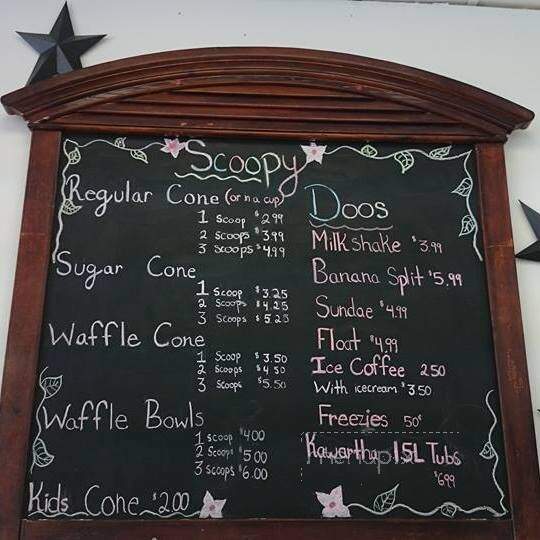 Scoopy
Doos
Regular Cone (or in a cup)
1 Scoop $2.99
2 Scoops $3.99
3 Scoops $4.99
Sugar Cone
1 Scoop $3.25
2 Scoops $4.25
3 Scoops $5.25
Waffle Cone
1 Scoop $3.50
2 Scoops $4.50
3 Scoops $5.50
Waffle Bowls
1 scoop $4.00
2 Scoops $5.00
3 Scoops $6.00
Kids Cone $2.00
Milkshake $3.99
Banana Split $5.99
Sundae $4.99
Float $4.99
Ice Coffee 2.50
With icecream $3.50
Freezies 50¢
Kawartha 1.5L Tubs
$6.99